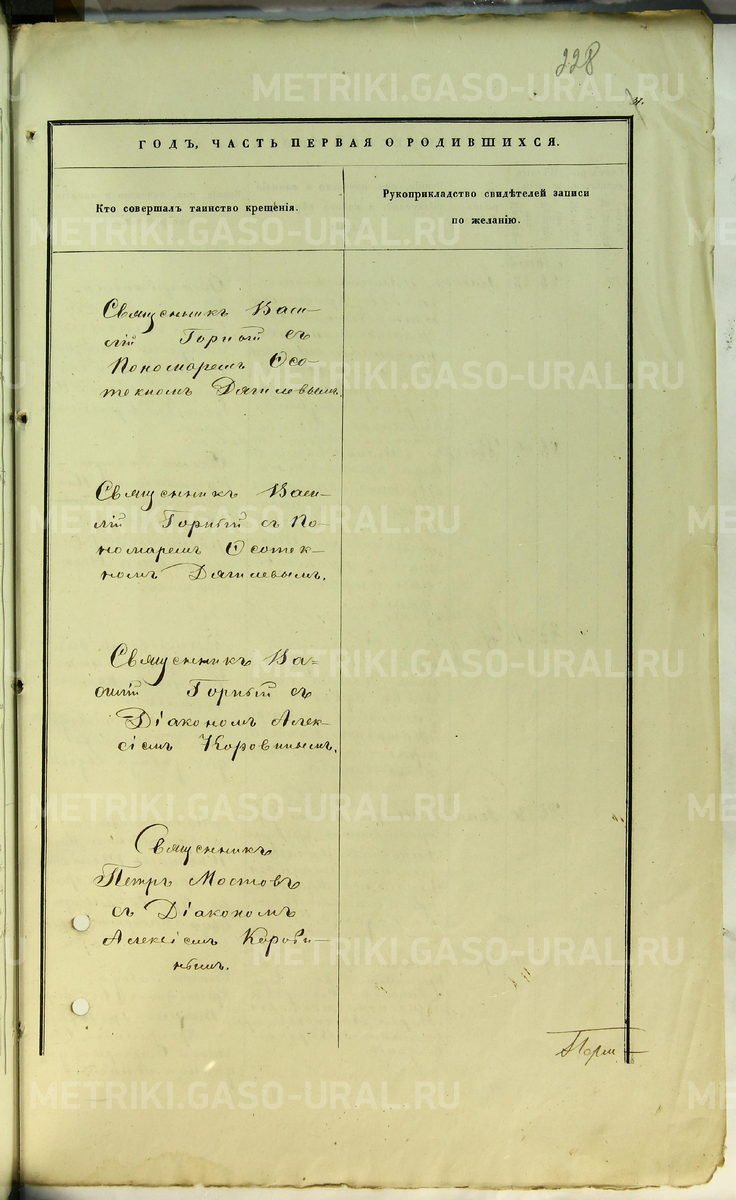 228
ГОДЪ, ЧАСТЬ ПЕРВАЯ О РОДИВШИХСЯ.
Кто совершалъ таинство крещенія.
Рукоприкладство свидѣтелей записи
по желанію.
Священникъ Васи-
лій Горный съ
Пономаремъ Ѳео-
текномъ Дягилевымъ.
Священникъ Васи-
лій Горный съ По-
номаремъ Ѳеотек-
номъ Дягилевымъ.
Священникъ Ва-
силій Горный съ
Діакономъ Алек-
сіемъ Коровинымъ.
Священникъ
Петръ Мостовъ
съ Діакономъ
Алексіемъ Корови-
нымъ.
METRIKI.GASO-URAL.RU
METRIKI.GASO-URAL.RU
METRIKI.GASO-URAL.RU
METRIKI.GASO-URAL.RU
METRIKI.GASO-URAL.RU
METRIKI.GASO-URAL.RU
METRIKI.GASO-URAL.RU
METRIKI.GASO-URAL.RU